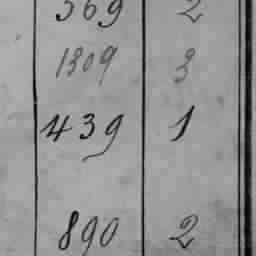 569 2
1309 3
439 1
890 2